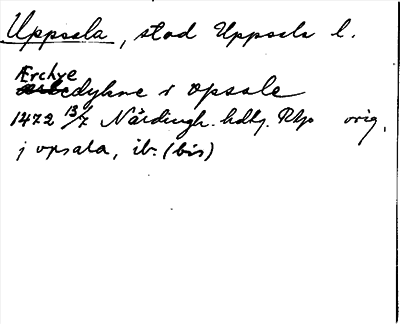 Uppsala, stad Uppsala l.
Ærchedykne i Opsale
1472 13/7 Närdingh. hdlg. RAp orig.
j opsala, ib. (bis)